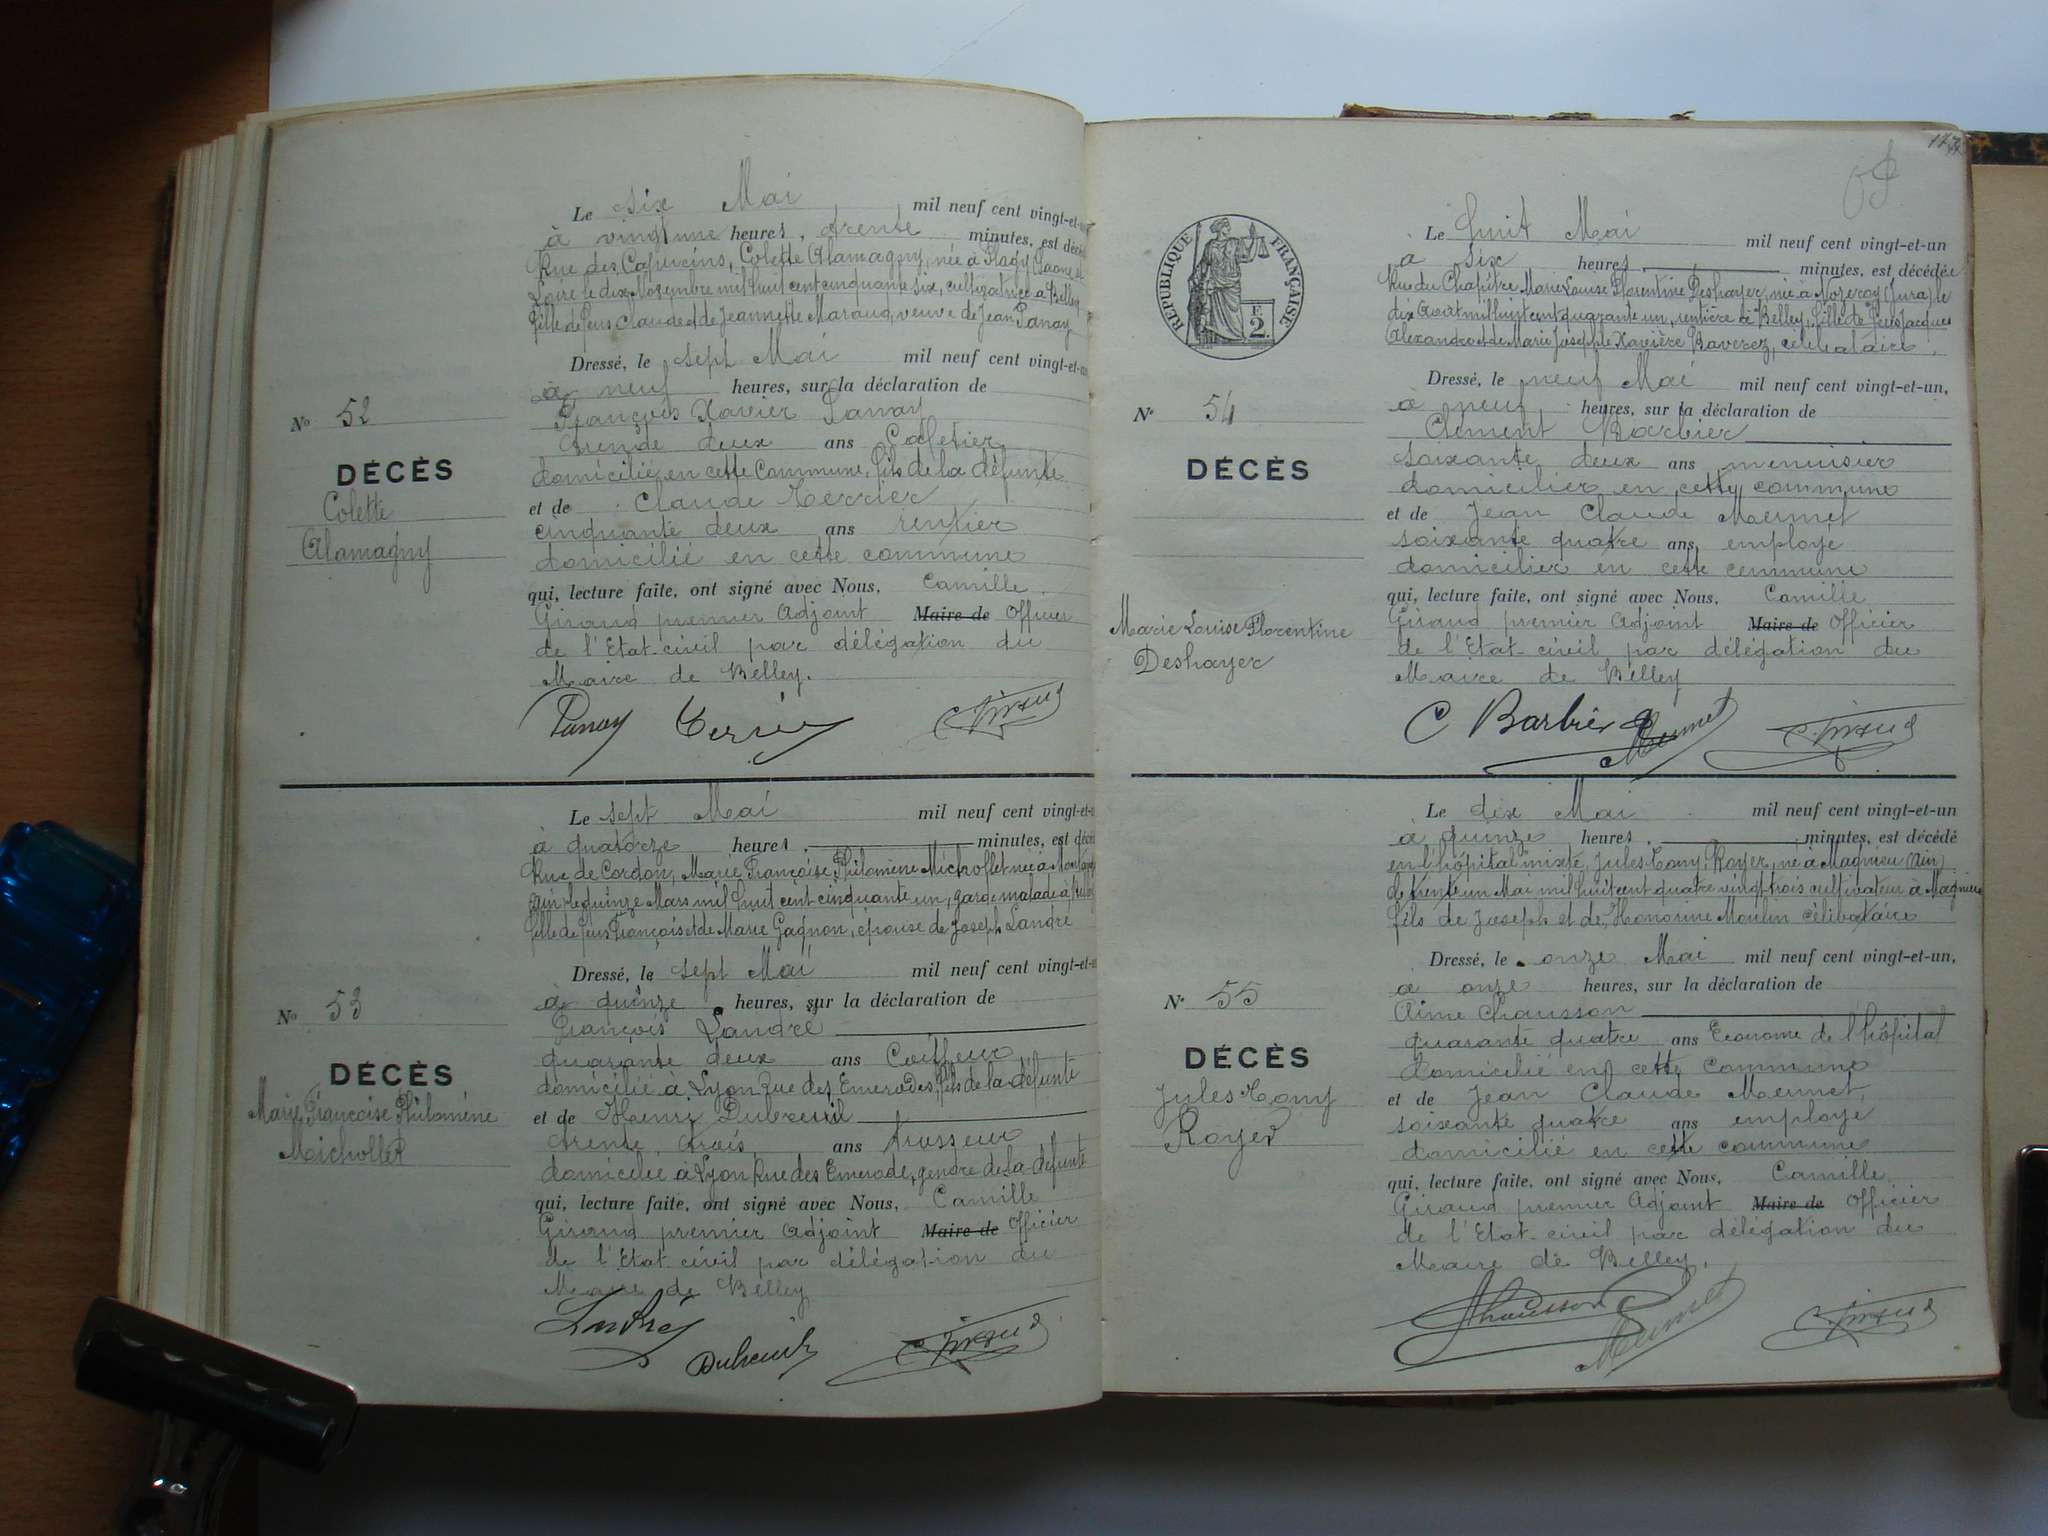 Le six Mai mil neuf cent vingt-et-un
à vingt une heures, trente minutes, est décéd
Rue des Capucins, Colette Alamagny, née à Flagy (Saône et
Loire le dix Novembre mil huit cent cinquante six, cultivatrice à Belley
fille de feus Claude et de Jeannette Maraud, veuve de Jean Panay
Dressé, le sept Mai mil neuf cent vingt-et-un
à neuf heures, sur la déclaration de
François Xavier Panay
trende deux ans Cafetier
domicilié en cette Commune, fils de la défunte
et de Claude Terrier
cinquante deux ans rentier
domicilié en cette commune
qui, lecture faite, ont signé avec Nous, Camille
Giraud premier Adjoint Maire de Officier
de l'Etat-civil par délégation du
Maire de Belley.
No 52
DÉCÈS
Colette
Alamagny
Panay Terrier C. Giraud
Le sept Mai mil neuf cent vingt-et-u
à quatorze heures, minutes, est décéd
Rue de Cordon, Marie Françoise Philomène Michollet née à
Ain le quinze Mars mil huit cent cinquante un, garde malade à Belley
fille de feus François et de Marie Gagnon, épouse de Joseph Landré
Dressé, le sept Mai mil neuf cent vingt-et-u
à quinze heures, sur la déclaration de
François Landré
quarante deux ans Coiffeur
domicilié à Lyon Rue des Emerodes, fils de la défunte
et de Henri Dubreuil
trente trois ans
domicilié à Lyon Rue des Emerode, gendre de la défunte
qui, lecture faite, ont signé avec Nous, Camille
Giraud premier Adjoint Maire de Officier
de l'Etat civil par délégation du
Maire de Belley
No 53
DÉCÈS
Marie Françoise Philomène
Michollet
Landré Dubreuil C. Giraud
117
RÉPUBLIQUE FRANÇAISE
F.
2.
Le huit Mai mil neuf cent vingt-et-un
à six heures, minutes, est décédée
Rue du Chapitre Marie Louise Florentine Deshayer, née à Nozeroy (Jura) le
dix Août mil huit cent quarante un, rentière à Belley, fille de feus Jacques
Alexandre et de Marie Josephte Xavière Baverez, célibataire.
Dressé, le neuf Mai mil neuf cent vingt-et-un,
à neuf heures, sur la déclaration de
Clément Barbier
soixante deux ans menuisier
domicilier en cette commune
et de Jean Claude Mermet
soixante quatre ans employé
domicilier en cette commune
qui, lecture faite, ont signé avec Nous, Camille
Giraud premier Adjoint Maire de Officier
de l'Etat-civil par délégation du
Maire de Belley
No 54
DÉCÈS
Marie Louise Florentine
Deshayer
C Barbier Mermet C. Giraud
Le dix Mai mil neuf cent vingt-et-un
à quinze heures, minutes, est décédé
en l'hôpital mixte, Jules Tony Royer, né à Magnieu (Ain)
le trente un Mai mil huit cent quatre vingt trois cultivateur à Magnieu
fils de Joseph et de Honorine Moulin célibataire
Dressé, le onze Mai mil neuf cent vingt-et-un,
à onze heures, sur la déclaration de
Aimé Chausson
quarante quatre ans Econome de l'hôpital
domicilié en cette Commune
et de Jean Claude Mermet,
soixante quatre ans employé
domicilié en cette commune
qui, lecture faite, ont signé avec Nous, Camille
Giraud premier Adjoint Maire de Officier
de l'Etat-civil par délégation du
Maire de Belley.
No 55
DÉCÈS
Jules Tony
Royer
Chausson Mermet C. Giraud